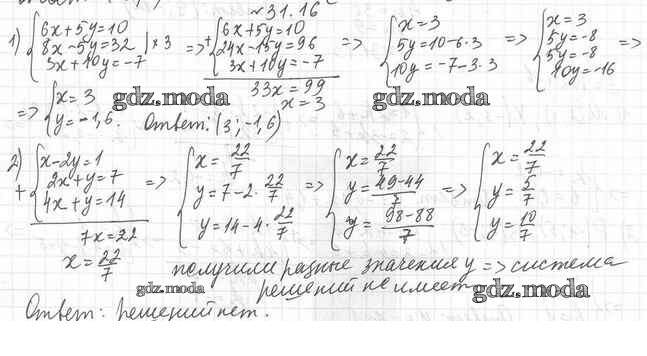 №31.16
1) { 6x+5y=10 ; 8x-5y=32 |×3 ; 3x+10y=-7 => + { 6x+5y=10 ; 24x-15y=96 ; 3x+10y=-7 => { x=3 ; 5y=10-6·3 ; 10y=-7-3·3 => { x=3 ; 5y=-8 ; 5y=-8 ; 10y=-16 =>
33x=99
x=3
=> { x=3 ; y=-1,6. Ответ: (3; -1,6)
gdz.moda gdz.moda
2) + { x-2y=1 ; 2x+y=7 ; 4x+y=14 => { x=22/7 ; y=7-2·22/7 ; y=14-4·22/7 => { x=22/7 ; y=49-44/7 ; y=98-88/7 => { x=22/7 ; y=5/7 ; y=10/7
7x=22
x=22/7
получили разные значения y => система
решений не имеет
gdz.moda gdz.moda
Ответ: решений нет.